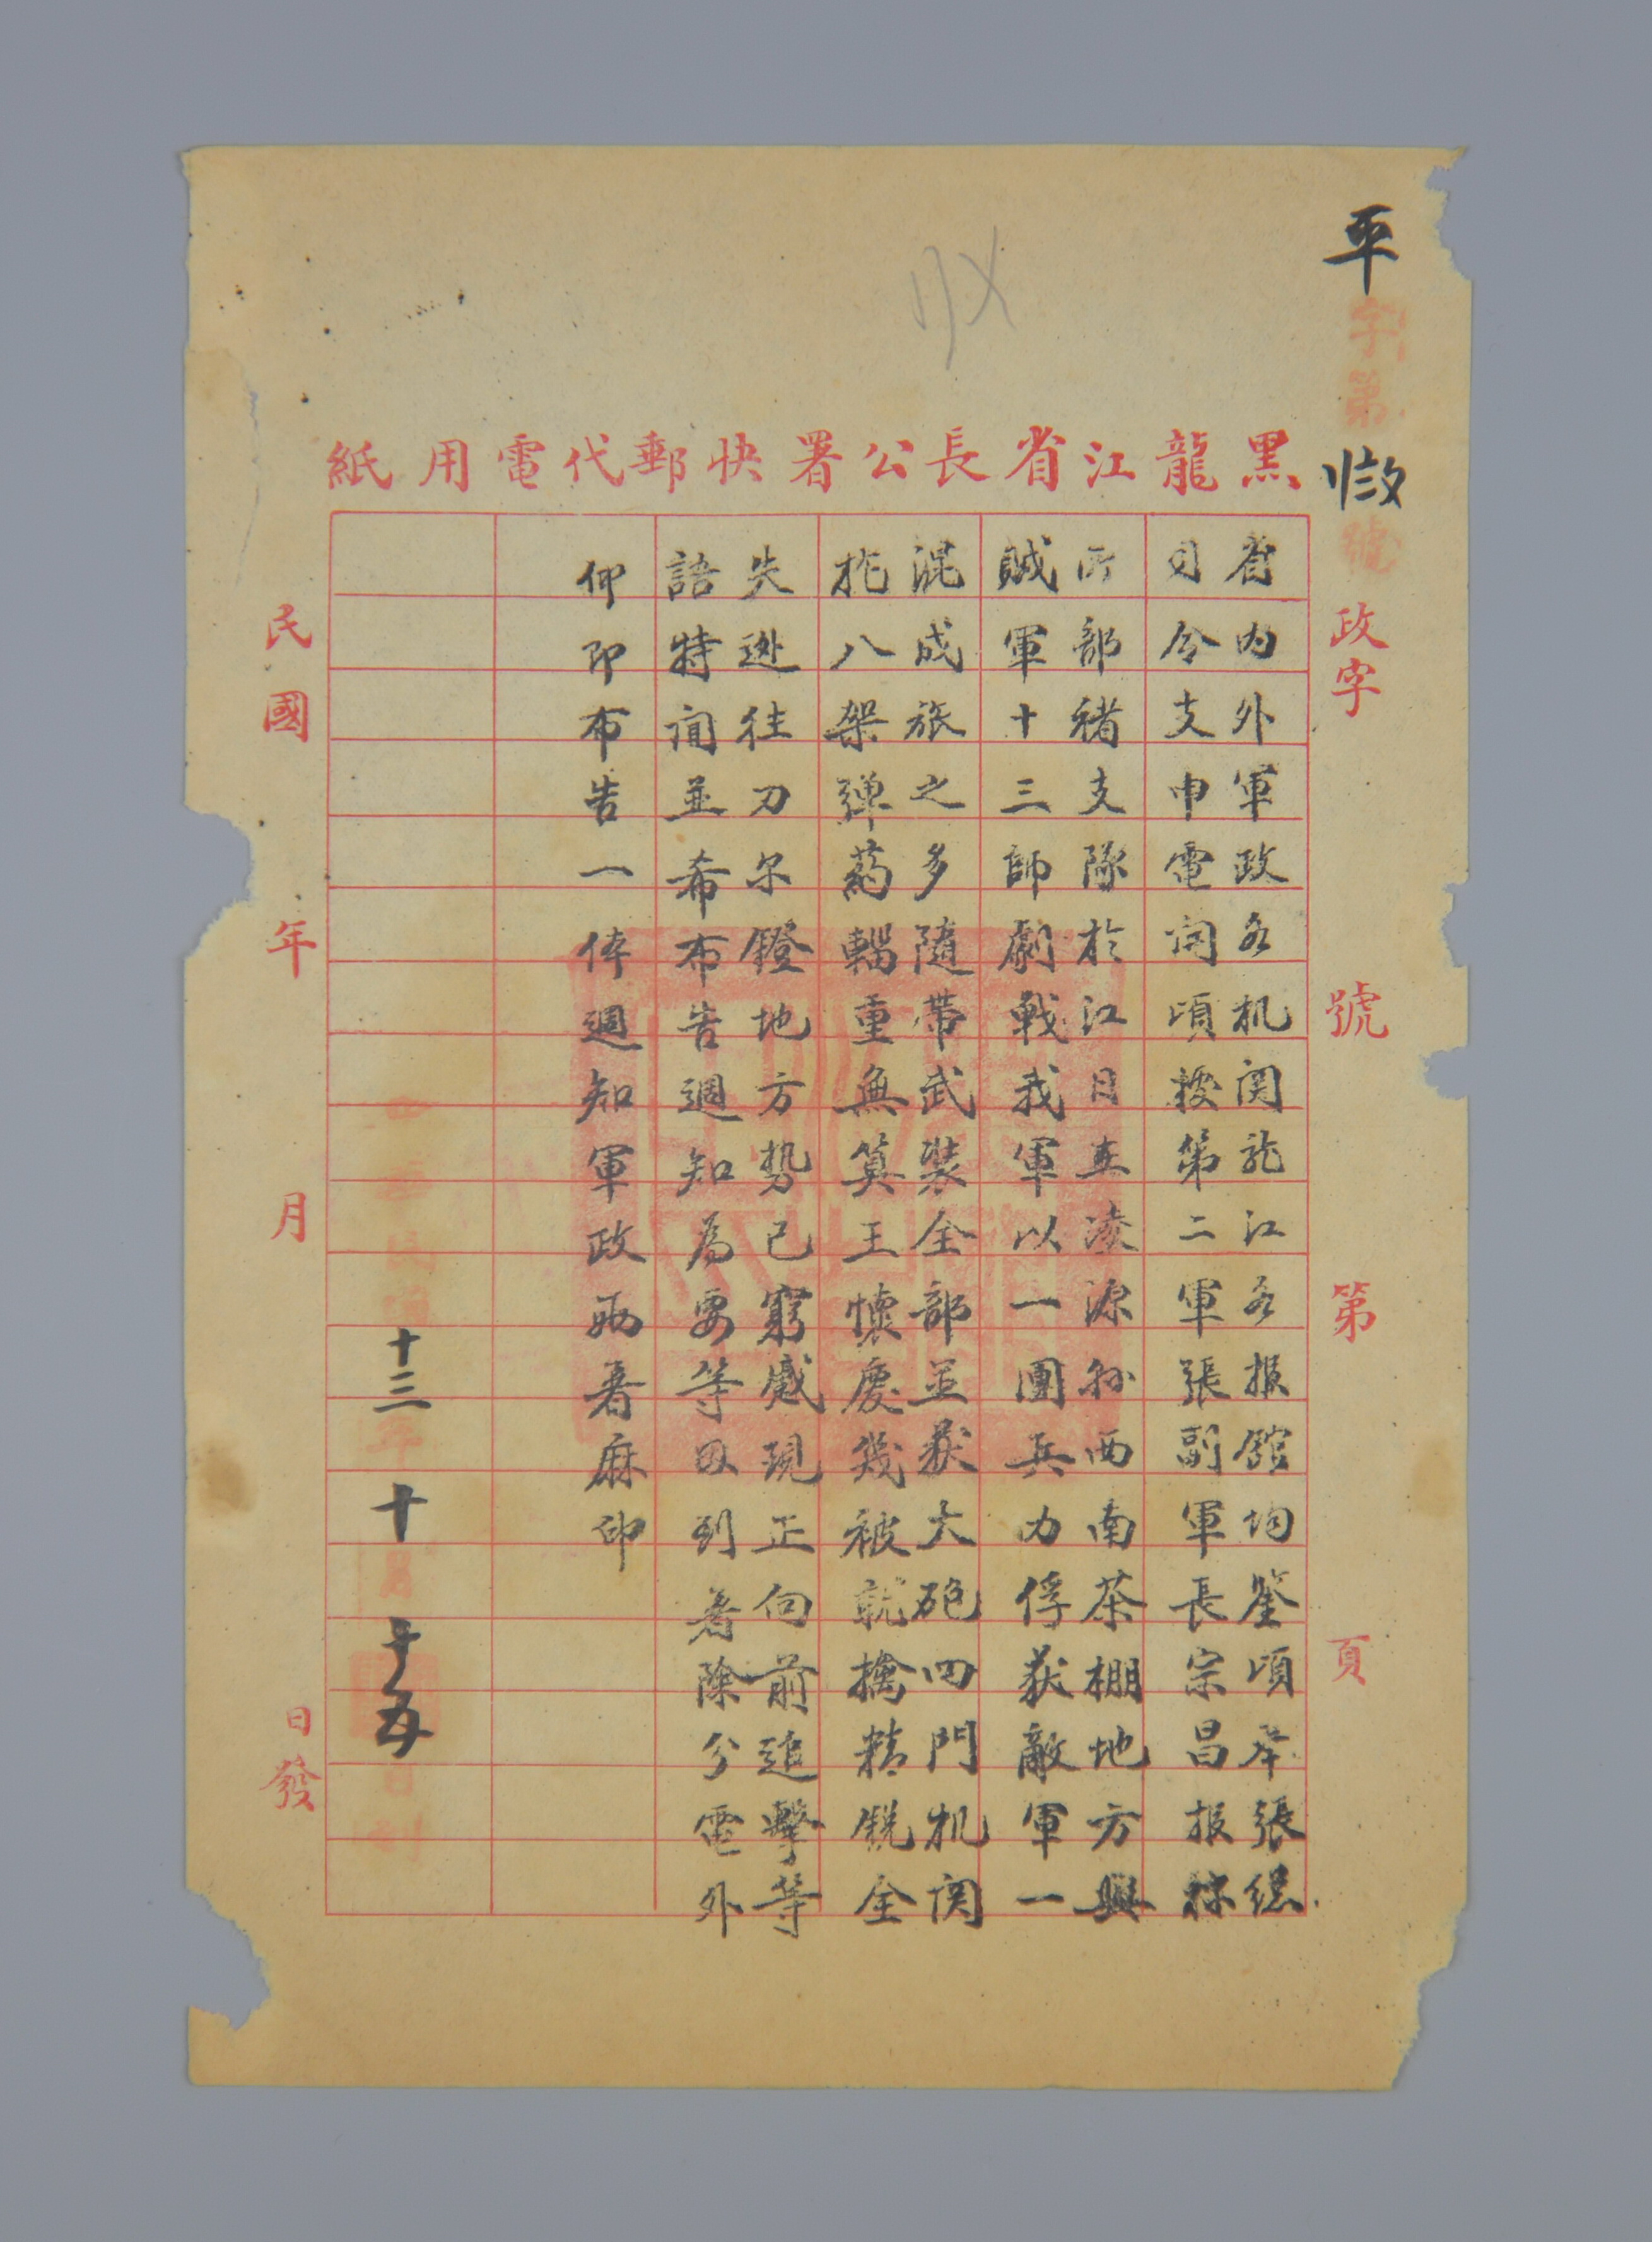 黑龍江省長公署快郵代電用紙
平字第號
政字 號 第 頁
省內外軍政各机関龍江各报館均鑒頃奉張總
司令支申電開頃接第二軍張副軍長宗昌报称
所部褚支隊於江日在凌源縣西南茶棚地方與
賊軍十三師劇戰我軍以一團兵力俘获敵軍一
混成旅之多隨帶武裝全部並获大砲四門机関
枪八架彈药輜重無算王懷慶幾被就擒精銳全
失逃往刀尔鐙地方势已窮蹙現正向前追擊等
語特並希布告週知為要等因到署除分電外
仰即布告一体週知軍政两署麻印
中華民國十三年十月十五日到
民國 年 月 日發